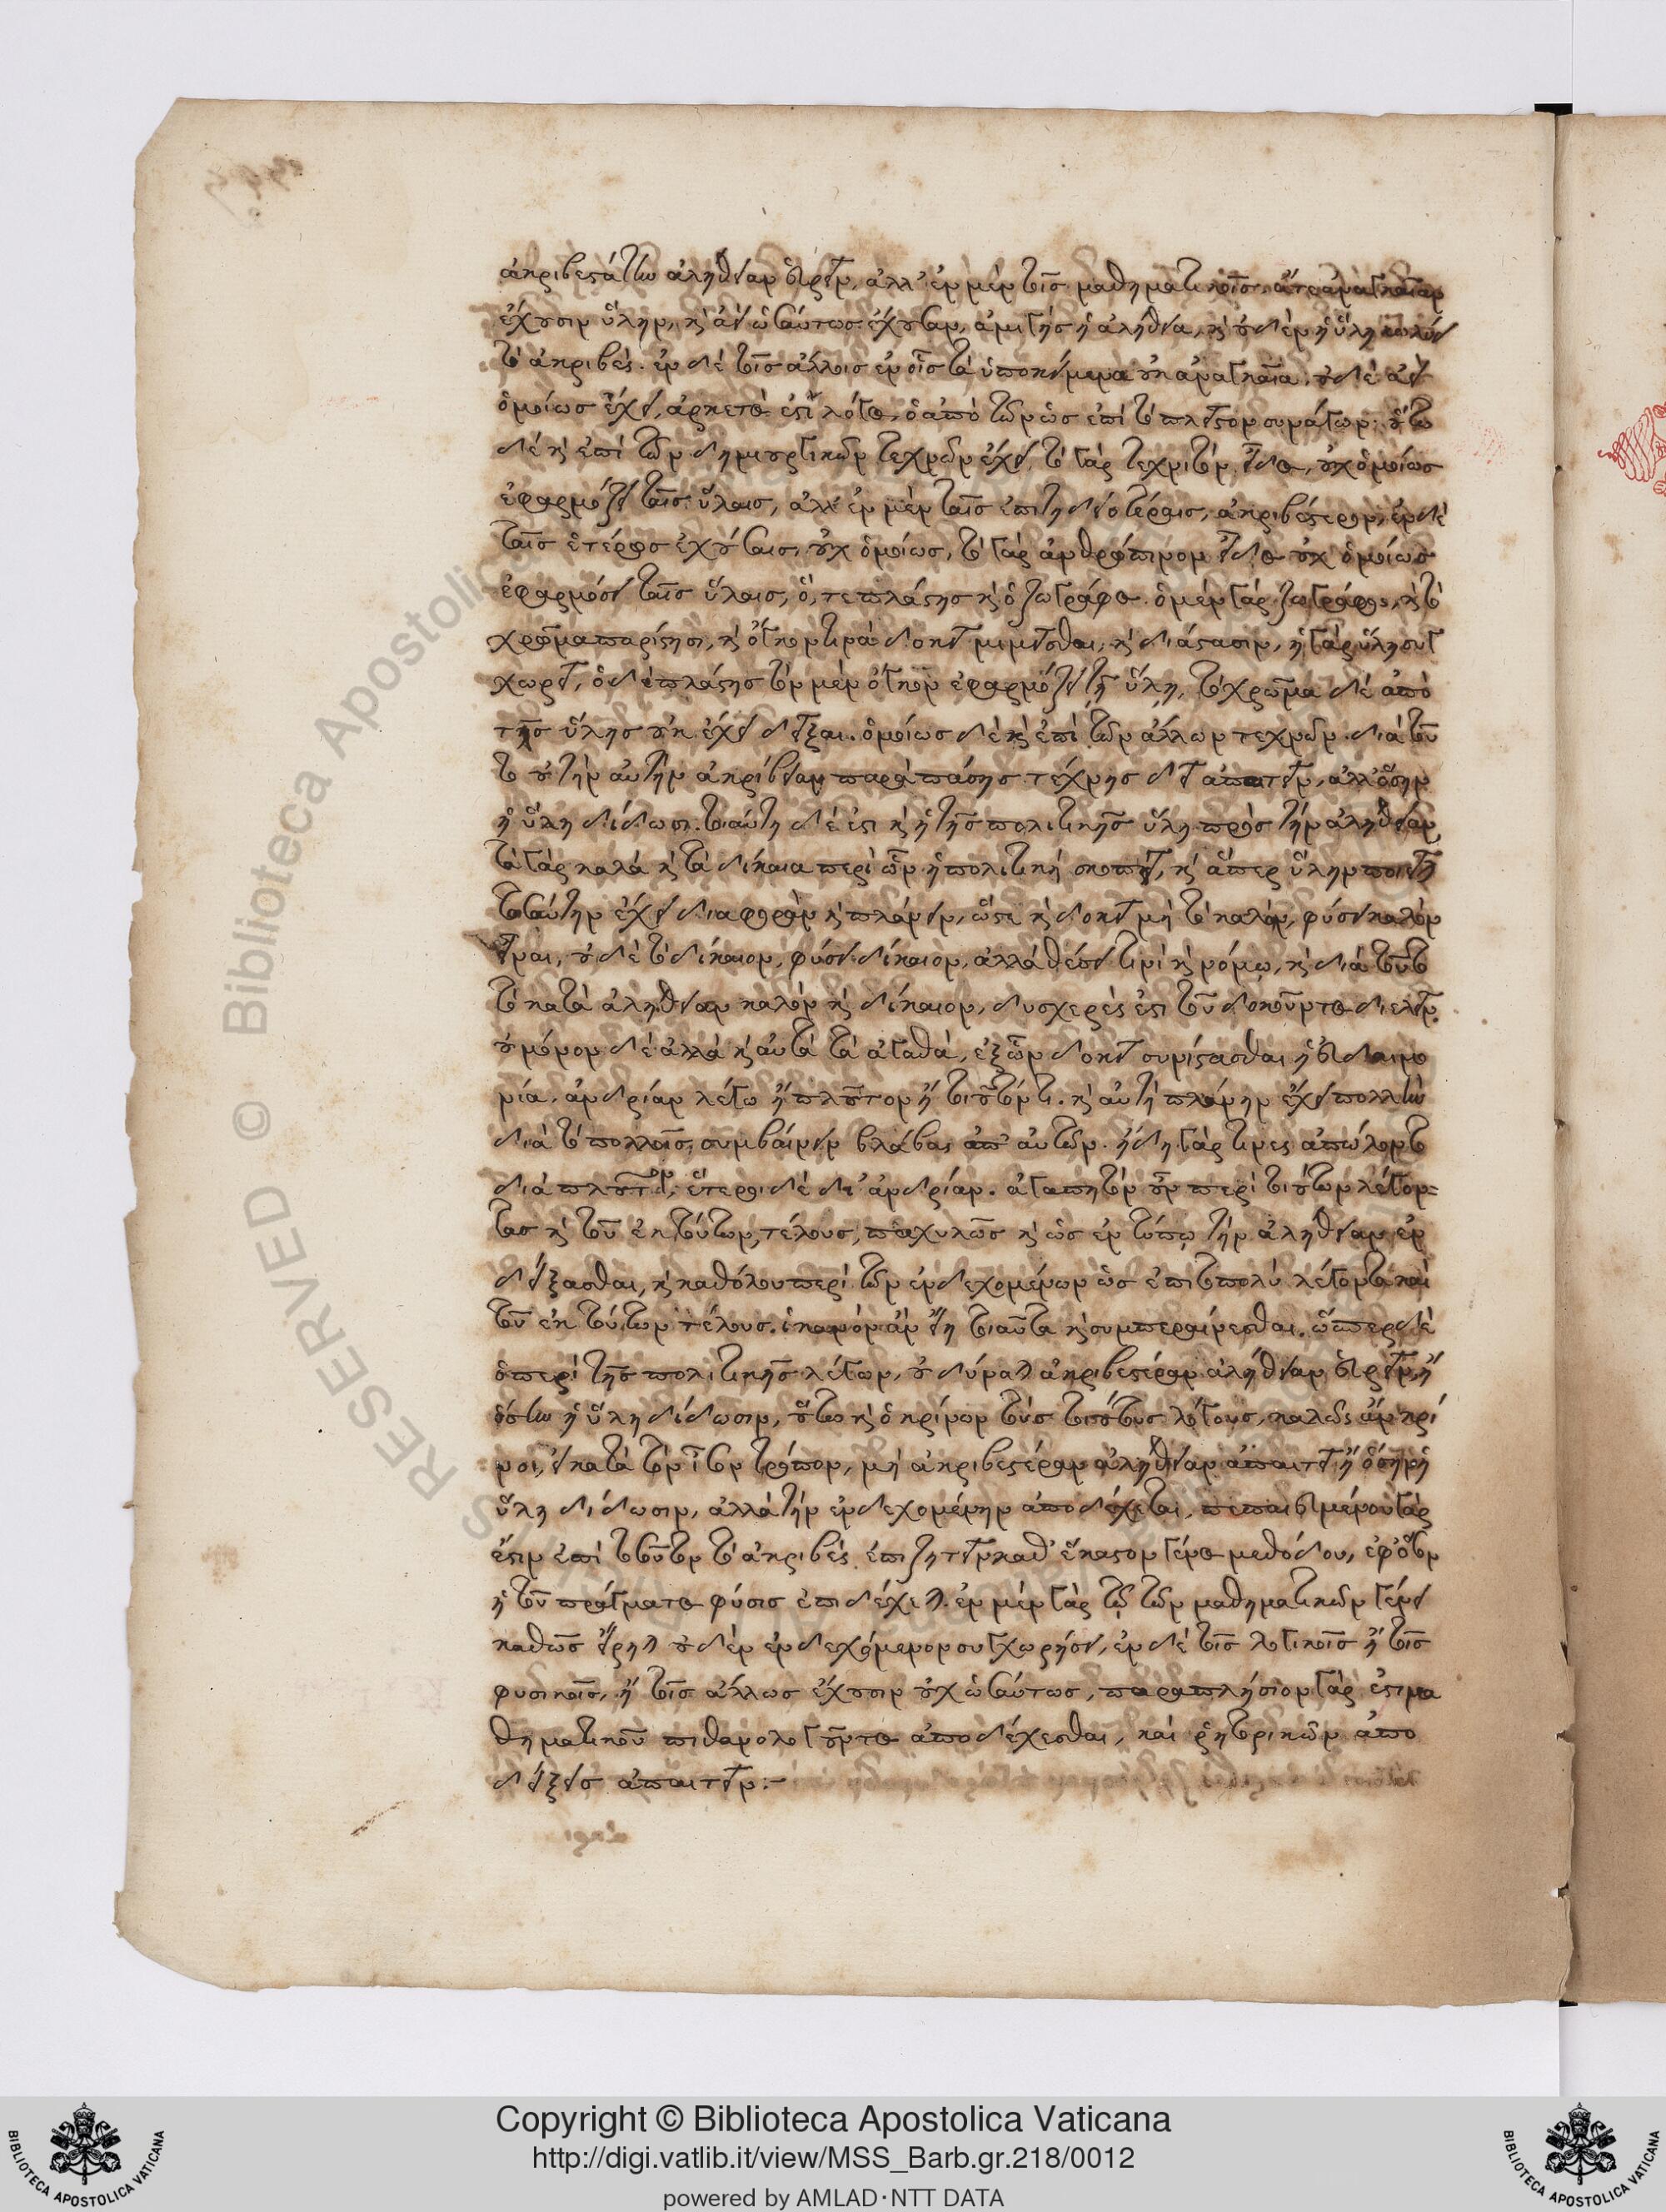 ἀκριβεστάτην ἀλήθειαν εὑρεῖν, ἀλλ' ἐν μὲν τοῖς μαθηματικοῖς, ἅτε ἀναγκαίαν
ἔχουσιν ὕλην, κ ἀεὶ ὡσαύτως ἔχουσαν, ἀμιγής ἡ ἀλήθεια, κ οὐδὲν ἡ ὕλη κωλύει
τὸ ἀκριβές. ἐν δὲ τοῖς ἄλλοις ἐν οἷς τὰ ὑποκείμενα οὐκ ἀναγκαῖα, οὐδὲ ἀεὶ
ὁμοίως ἔχει, ἀρκετός ἐστι λόγος, ὁ ἀπὸ τῶν ὡς ἐπὶ τὸ πλεῖστον συνάγων. οὕτω
δὲ κ ἐπὶ τῶν δημιουργικῶν τεχνῶν ἔχει, τὸ γὰρ τεχνιτὸν εἶδος, οὐχ ὁμοίως
ἐφαρμόζει ταῖς ὕλαις, ἀλλ' ἐν μὲν ταῖς ἐπιτηδειοτέραις, ἀκριβέστερον, ἐν δὲ
ταῖς ἑτέρως ἐχούσαις οὐχ ὁμοίως, τὸ γὰρ ἀνθρώπινον εἶδος οὐχ ὁμοίως
ἐφαρμόσει ταῖς ὕλαις, ὅ, τε πλάστης κ ὁ ζωγράφος. ὁ μὲν γὰρ ζωγράφος, κ τὸ
χρῶμα παρίστησι, κ ὄγκον τινὰ δοκεῖ μιμεῖσθαι, κ διάστασιν, ἡ γὰρ ὕλη συγ
χωρεῖ, ὁ δὲ πλάστης τὸν μὲν ὄγκον ἐφαρμόζει τῇ ὕλῃ, τὸ χρῶμα δὲ ἀπὸ
τῆς ὕλης οὐκ ἔχει δεῖξαι. ὁμοίως δὲ κ ἐπὶ τῶν ἄλλων τεχνῶν. διὰ τοῦ
το οὐ τὴν αὐτὴν ἀκρίβειαν παρὰ πάσης τέχνης δεῖ ἀπαιτεῖν, ἀλλ' ὅσην
ἡ ὕλη δίδωσι. τοιαύτη δέ ἐστι κ ἡ τῆς πολιτικῆς ὕλη πρὸς τὴν ἀλήθειαν,
τὰ γὰρ καλὰ κ τὰ δίκαια περὶ ὧν ἡ πολιτικὴ σκοπεῖ, κ ἅπερ ὕλην ποιεῖται
τοσαύτην ἔχει διαφορὰν κ πλάνην, ὥστε κ δοκεῖ μὴ τὸ καλὸν, φύσει καλὸν
εἶναι, οὐδὲ τὸ δίκαιον, φύσει δίκαιον, ἀλλὰ θέσει τινὶ κ νόμῳ, κ διὰ τοῦτο
τὸ κατὰ ἀλήθειαν καλὸν κ δίκαιον, δυσχερές ἐστι τοῦ δοκοῦντος διελεῖν.
οὐ μόνον δὲ ἀλλὰ κ αὐτὰ τὰ ἀγαθὰ, ἐξ ὧν δοκεῖ συνίστασθαι ἡ εὐδαιμο
νία. ἀνδρίαν λέγω ἢ πλοῦτον ἢ τοιοῦτόν τι. κ αὐτὴ πλάνην ἔχει πολλὴν
διὰ τὸ πολλοῖς συμβαίνειν βλάβας ἀπ' αὐτῶν. ἤδη γάρ τινες ἀπώλοντο
διὰ πλοῦτον, ἕτεροι δὲ δι' ἀνδρίαν. ἀγαπητὸν οὖν περὶ τοιούτων λέγον=
τας κ τοῦ ἐκ τούτων, τέλους, παχυλῶς κ ὡς ἐν τύπῳ τὴν ἀλήθειαν ἐν
δείξασθαι, κ καθόλου περὶ τῶν ἐνδεχομένων ὡς ἐπιτοπολὺ λέγοντα καὶ
τοῦ ἐκ τούτων τέλους. ἱκανὸν ἂν εἴη τοιαῦτα κ συμπεραίνεσθαι. ὥσπερ δὲ
ὁ περὶ τῆς πολιτικῆς λέγων, οὐ δύναται ἀκριβεστέραν ἀλήθειαν εὑρεῖν, ἢ
ὅσην ἡ ὕλη δίδωσιν, οὕτω κ ὁ κρίνων τοὺς τοιούτους λόγους, καλῶς ἂν κρί
νοι, εἰ κατὰ τὸν ἴσον τρόπον, μὴ ἀκριβεστέραν ἀλήθειαν ἀπαιτεῖ ἢ ὅσην ἡ
ὕλη δίδωσιν, ἀλλὰ τὴν ἐνδεχομένην ἀποδέχεται, πεπαιδευμένου γάρ
ἐστιν ἐπὶ τοσοῦτον τὸ ἀκριβές ἐπιζητεῖν καθ' ἕκαστον γένος μεθόδου, ἐφ' ὅσον
ἡ τοῦ πράγματος φύσις ἐπιδέχεται. ἐν μὲν γὰρ τῷ τῶν μαθηματικῶν γένει
καθὼς εἴρηται οὐδὲν ἐνδεχόμενον συγχωρήσει, ἐν δὲ τοῖς λογικοῖς ἢ τοῖς
φυσικοῖς, ἢ τοῖς ἄλλως ἔχουσιν οὐχ ὡσαύτως, παραπλήσιον γάρ ἐστι μα
θηματικοῦ πιθανολογοῦντος ἀποδέχεσθαι, καὶ ῥητορικῶν ἀπο
δείξεις ἀπαιτεῖν:-
RESERVED © Biblioteca Apostolica
BIBLIOTECA APOSTOLICA VATICANA
Copyright © Biblioteca Apostolica Vaticana
http://digi.vatlib.it/view/MSS_Barb.gr.218/0012
powered by AMLAD·NTT DATA
BIBLIOTECA APOSTOLICA VATICANA